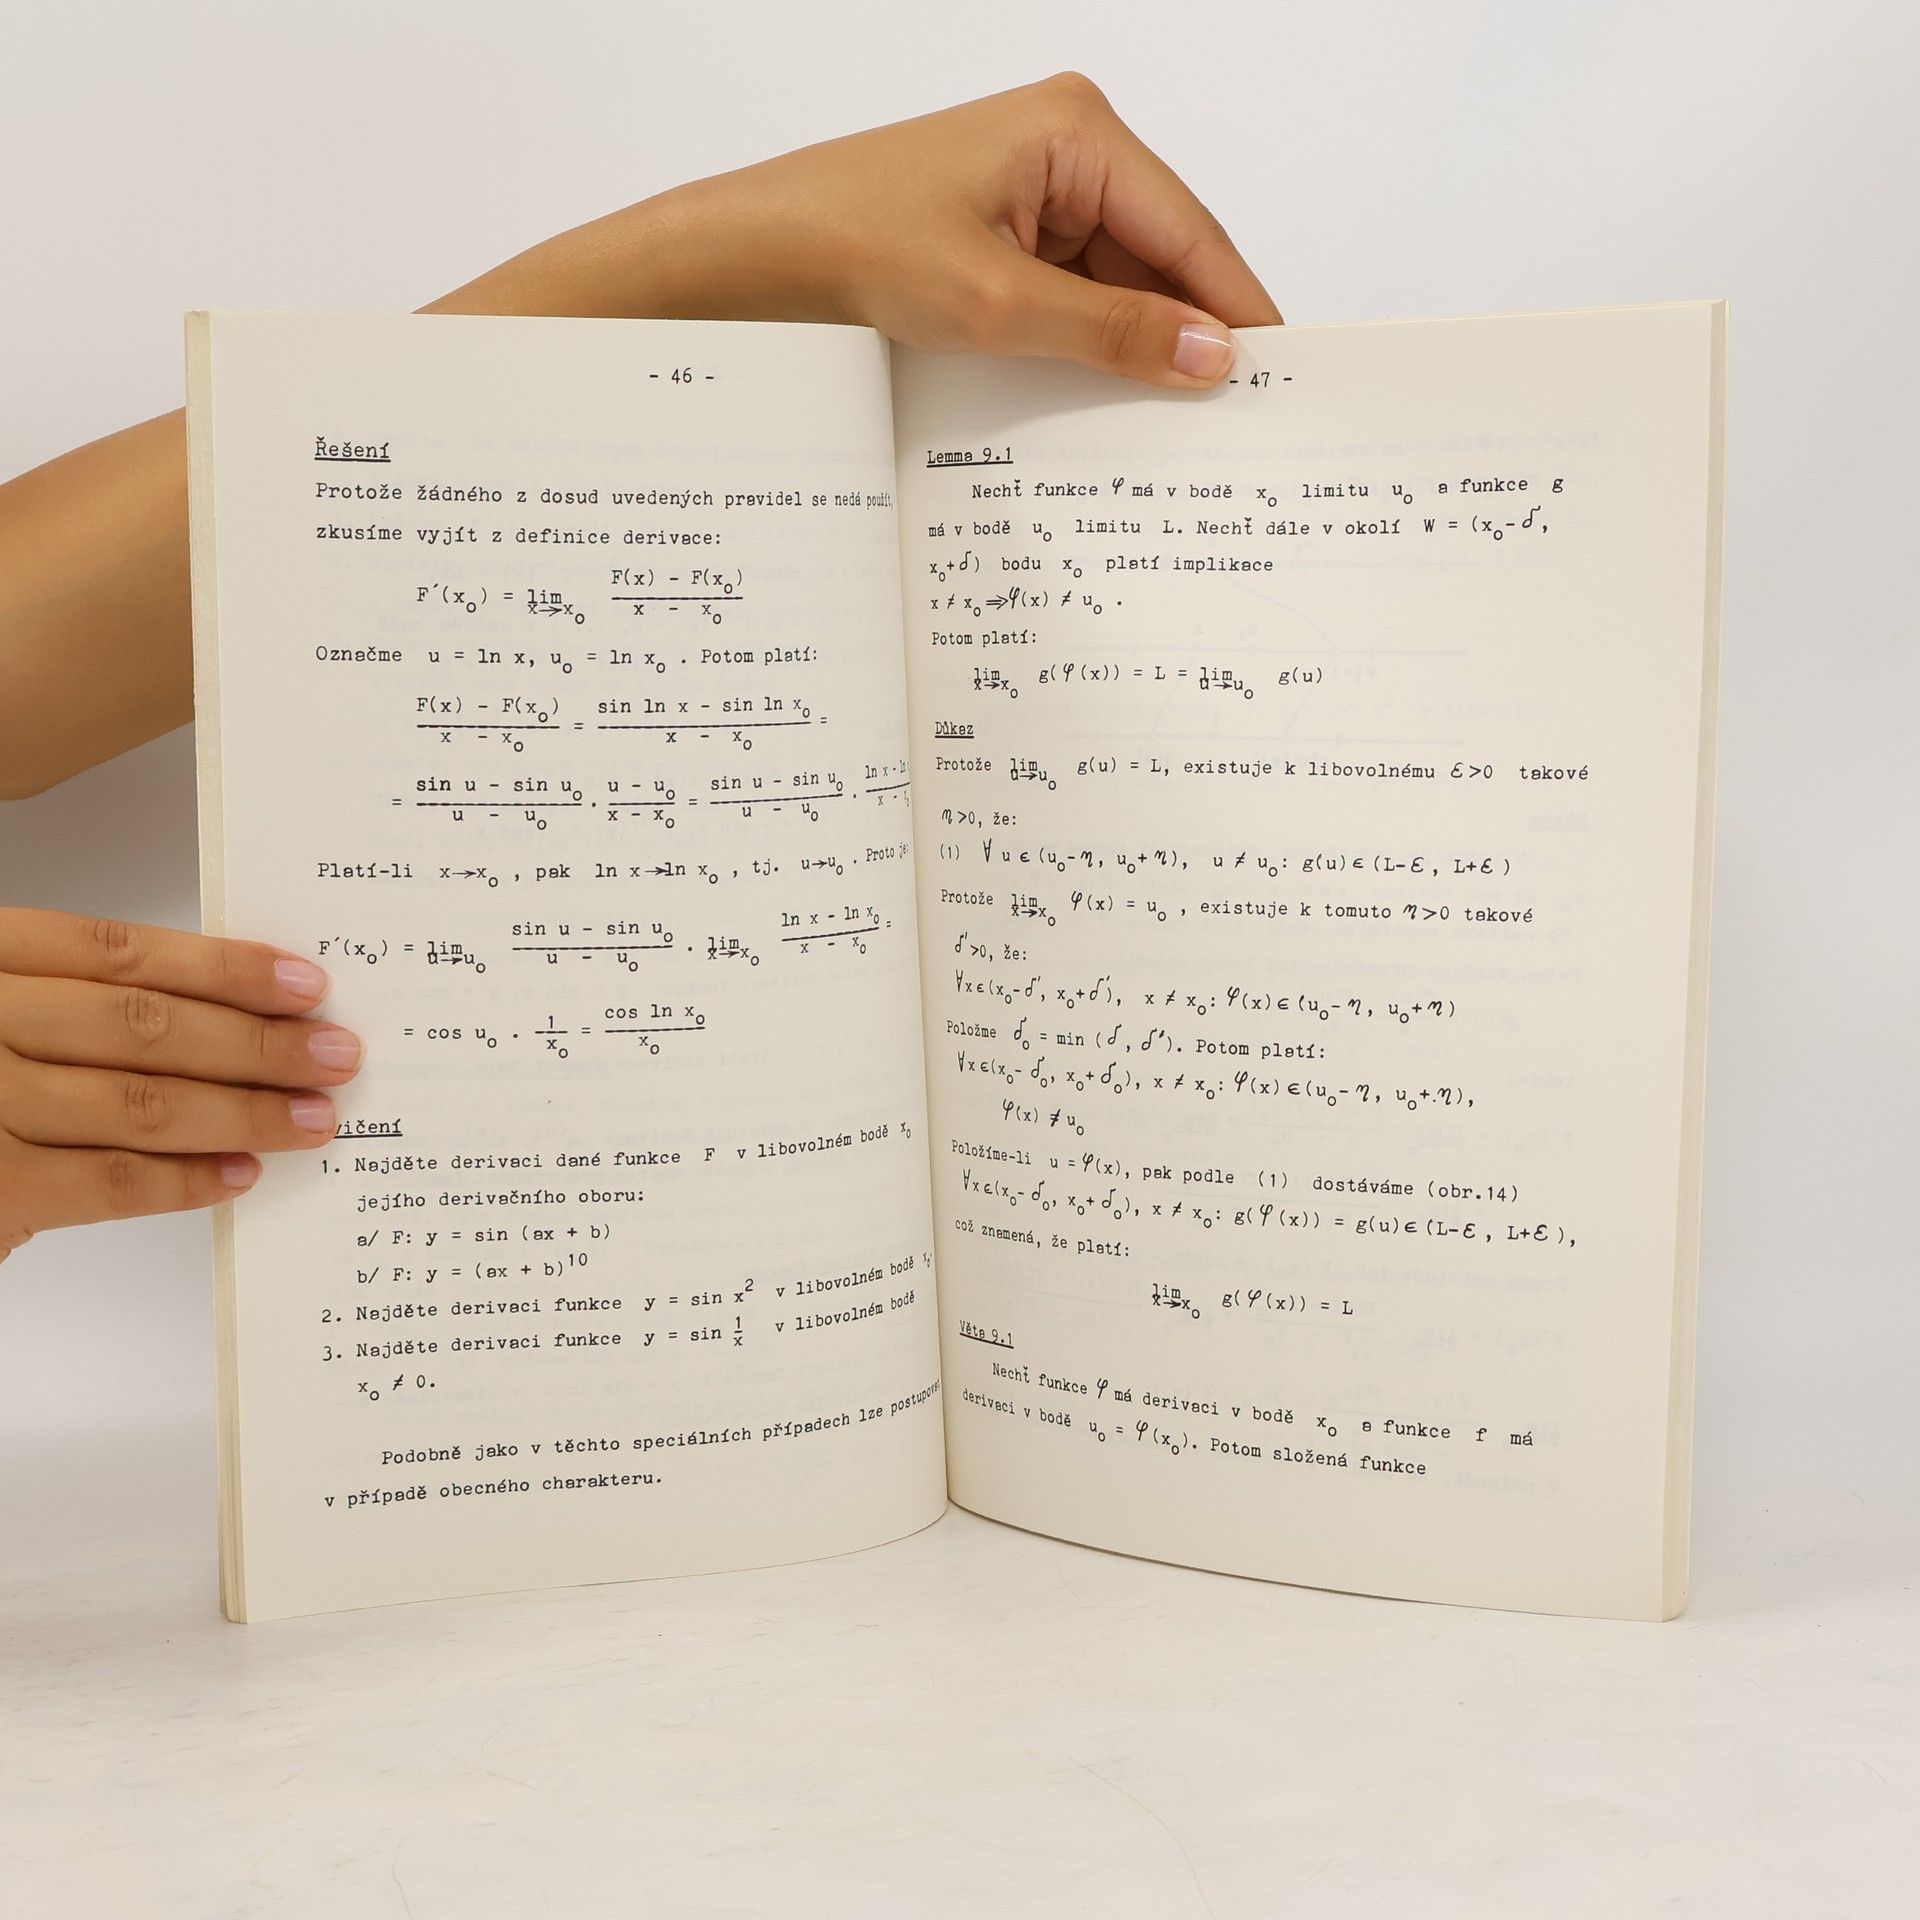 - 46 -
Řešení
Protože žádného z dosud uvedených pravidel se nedá použít,
zkusíme vyjít z definice derivace:
F´(x₀) = lim x→x₀ (F(x) - F(x₀)) / (x - x₀)
Označme u = ln x, u₀ = ln x₀ . Potom platí:
(F(x) - F(x₀)) / (x - x₀) = (sin ln x - sin ln x₀) / (x - x₀) =
= (sin u - sin u₀) / (u - u₀) . (u - u₀) / (x - x₀) = (sin u - sin u₀) / (u - u₀) . (ln x - ln / (x - x₀
Platí-li x→x₀ , pak ln x→ln x₀ , tj. u→u₀ . Proto je:
F´(x₀) = lim u→u₀ (sin u - sin u₀) / (u - u₀) . lim x→x₀ (ln x - ln x₀) / (x - x₀) =
= cos u₀ . 1/x₀ = cos ln x₀ / x₀
vičení
1. Najděte derivaci dané funkce F v libovolném bodě x₀
jejího derivačního oboru:
a/ F: y = sin (ax + b)
b/ F: y = (ax + b)¹⁰
2. Najděte derivaci funkce y = sin x² v libovolném bodě x₀.
3. Najděte derivaci funkce y = sin 1/x v libovolném bodě
x₀ ≠ 0.
Podobně jako v těchto speciálních případech lze postupovat
v případě obecného charakteru.
- 47 -
Lemma 9.1
Nechť funkce φ má v bodě x₀ limitu u₀ a funkce g
má v bodě u₀ limitu L. Nechť dále v okolí W = (x₀-δ,
x₀+δ) bodu x₀ platí implikace
x ≠ x₀ ⇒ φ(x) ≠ u₀ .
Potom platí:
lim x→x₀ g(φ(x)) = L = lim u→u₀ g(u)
Důkaz
Protože lim u→u₀ g(u) = L, existuje k libovolnému ε>0 takové
η>0, že:
(1) ∀ u ∈ (u₀-η, u₀+η), u ≠ u₀: g(u) ∈ (L-ε, L+ε)
Protože lim x→x₀ φ(x) = u₀ , existuje k tomuto η>0 takové
δ'>0, že:
∀x∈(x₀-δ', x₀+δ'), x ≠ x₀: φ(x) ∈ (u₀-η, u₀+η)
Položme δ₀ = min (δ, δ'). Potom platí:
∀x∈(x₀-δ₀, x₀+δ₀), x ≠ x₀: φ(x) ∈ (u₀-η, u₀+.η),
φ(x) ≠ u₀
Položíme-li u = φ(x), pak podle (1) dostáváme (obr.14)
∀x∈(x₀-δ₀, x₀+δ₀), x ≠ x₀: g(φ(x)) = g(u) ∈ (L-ε, L+ε),
což znamená, že platí:
lim x→x₀ g(φ(x)) = L
Věta 9.1
Nechť funkce φ má derivaci v bodě x₀ a funkce f má
derivaci v bodě u₀ = φ(x₀). Potom složená funkce